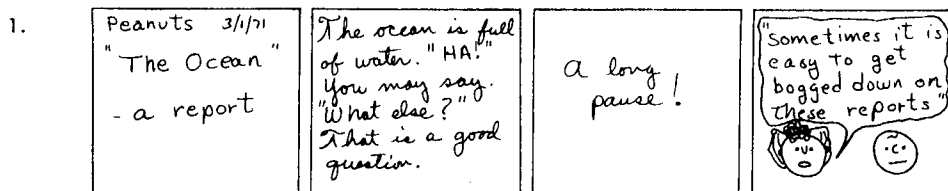 1.
Peanuts 3/1/71
"The Ocean"
- a report
The ocean is full
of water. "HA!"
you may say.
"What else?"
That is a good
question.
a long
pause!
"Sometimes it is
easy to get
bogged down on
these reports"